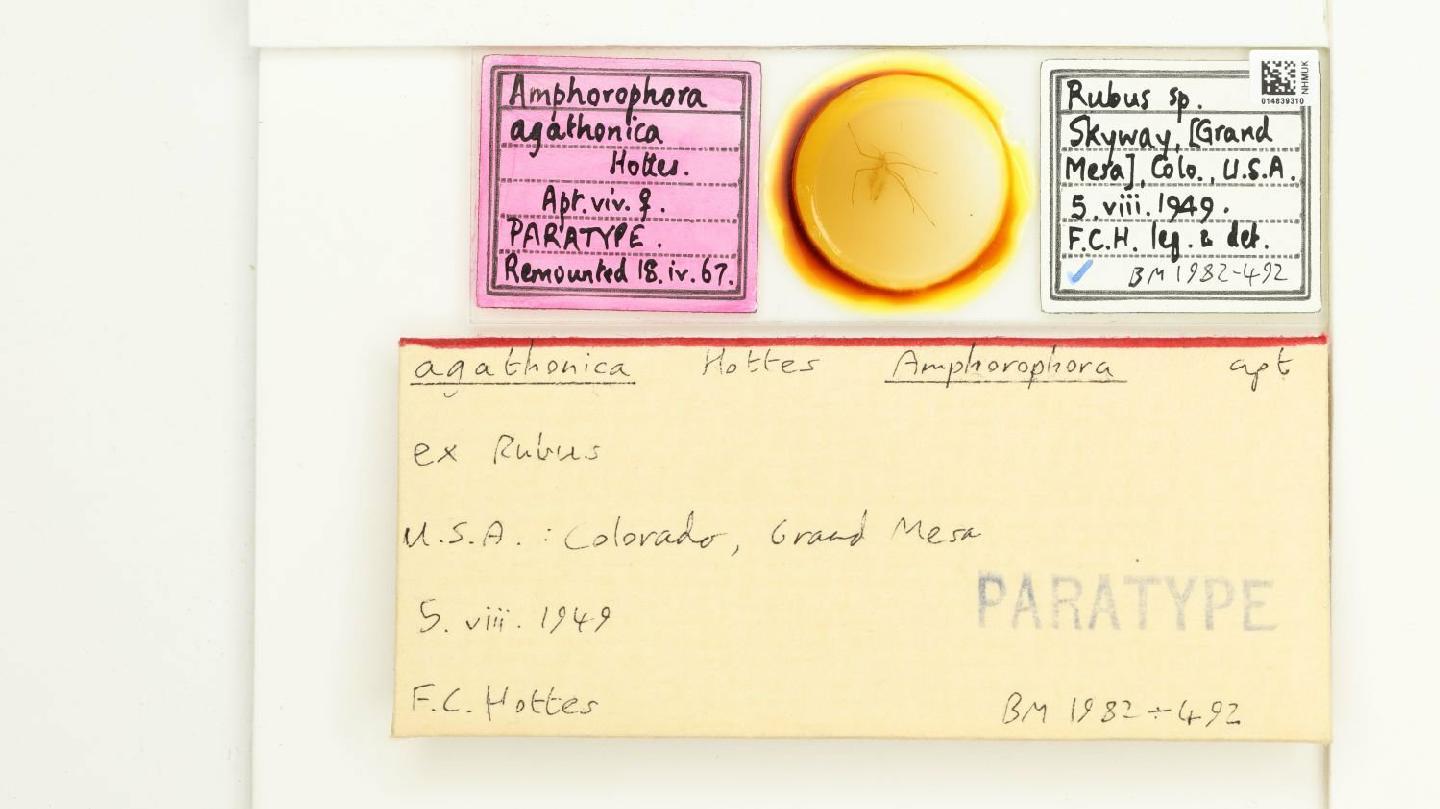 Amphorophora
agathonica
Hottes.
Apt. viv. ♀.
PARATYPE.
Remounted 18.iv.67.
NHMUK
014839310
Rubus sp.
Skyway, [Grand
Mesa], Colo., U.S.A.
5.viii.1949.
F.C.H. leg. & det.
BM 1982-492
agathonica Hottes Amphorophora apt
ex Rubus
U.S.A. : Colorado, Grand Mesa
PARATYPE
5. viii. 1949
F.C. Hottes
BM 1982-492